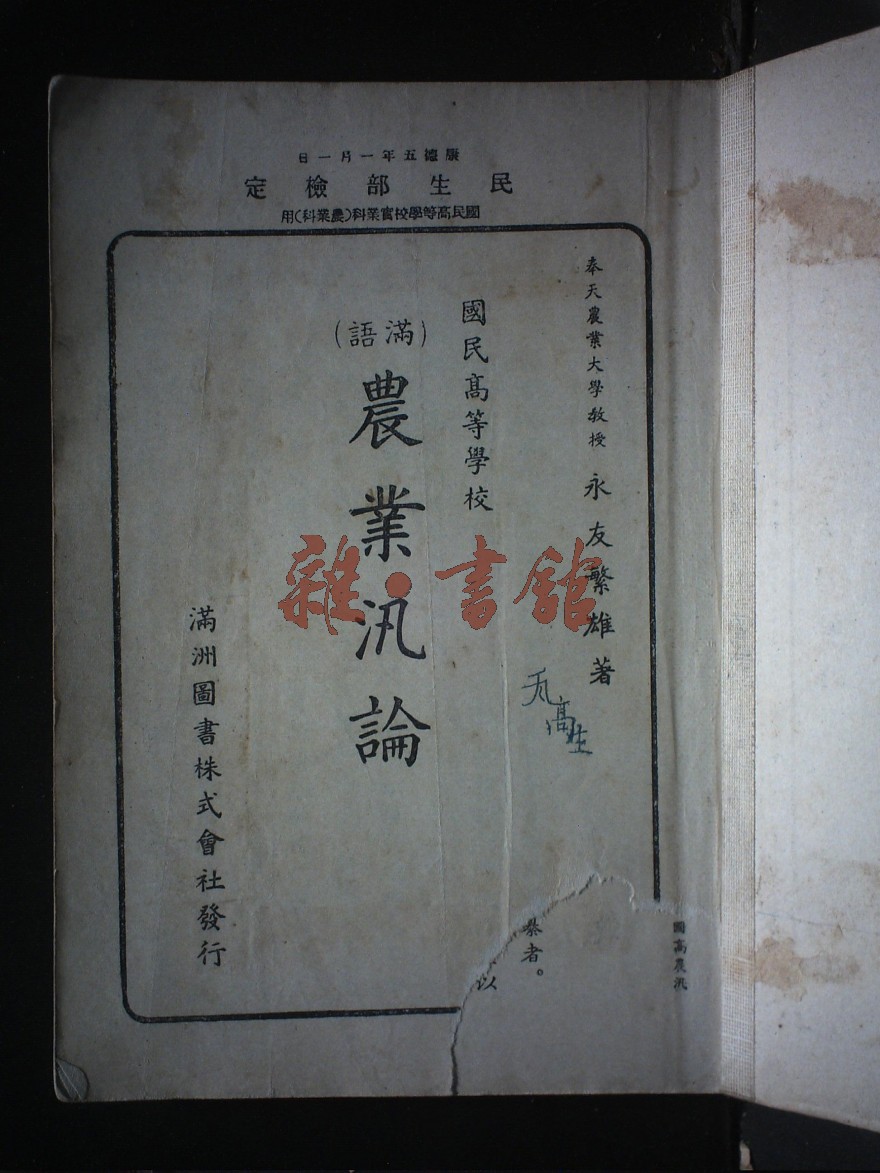 康德五年一月一日
民生部檢定
國民高等學校實業科(農業科)用
奉天農業大學教授 永友繁雄著
國民高等學校
(滿語)
農業汎論
滿洲圖書株式會社發行
雜·書館
者。
以
國高農汎